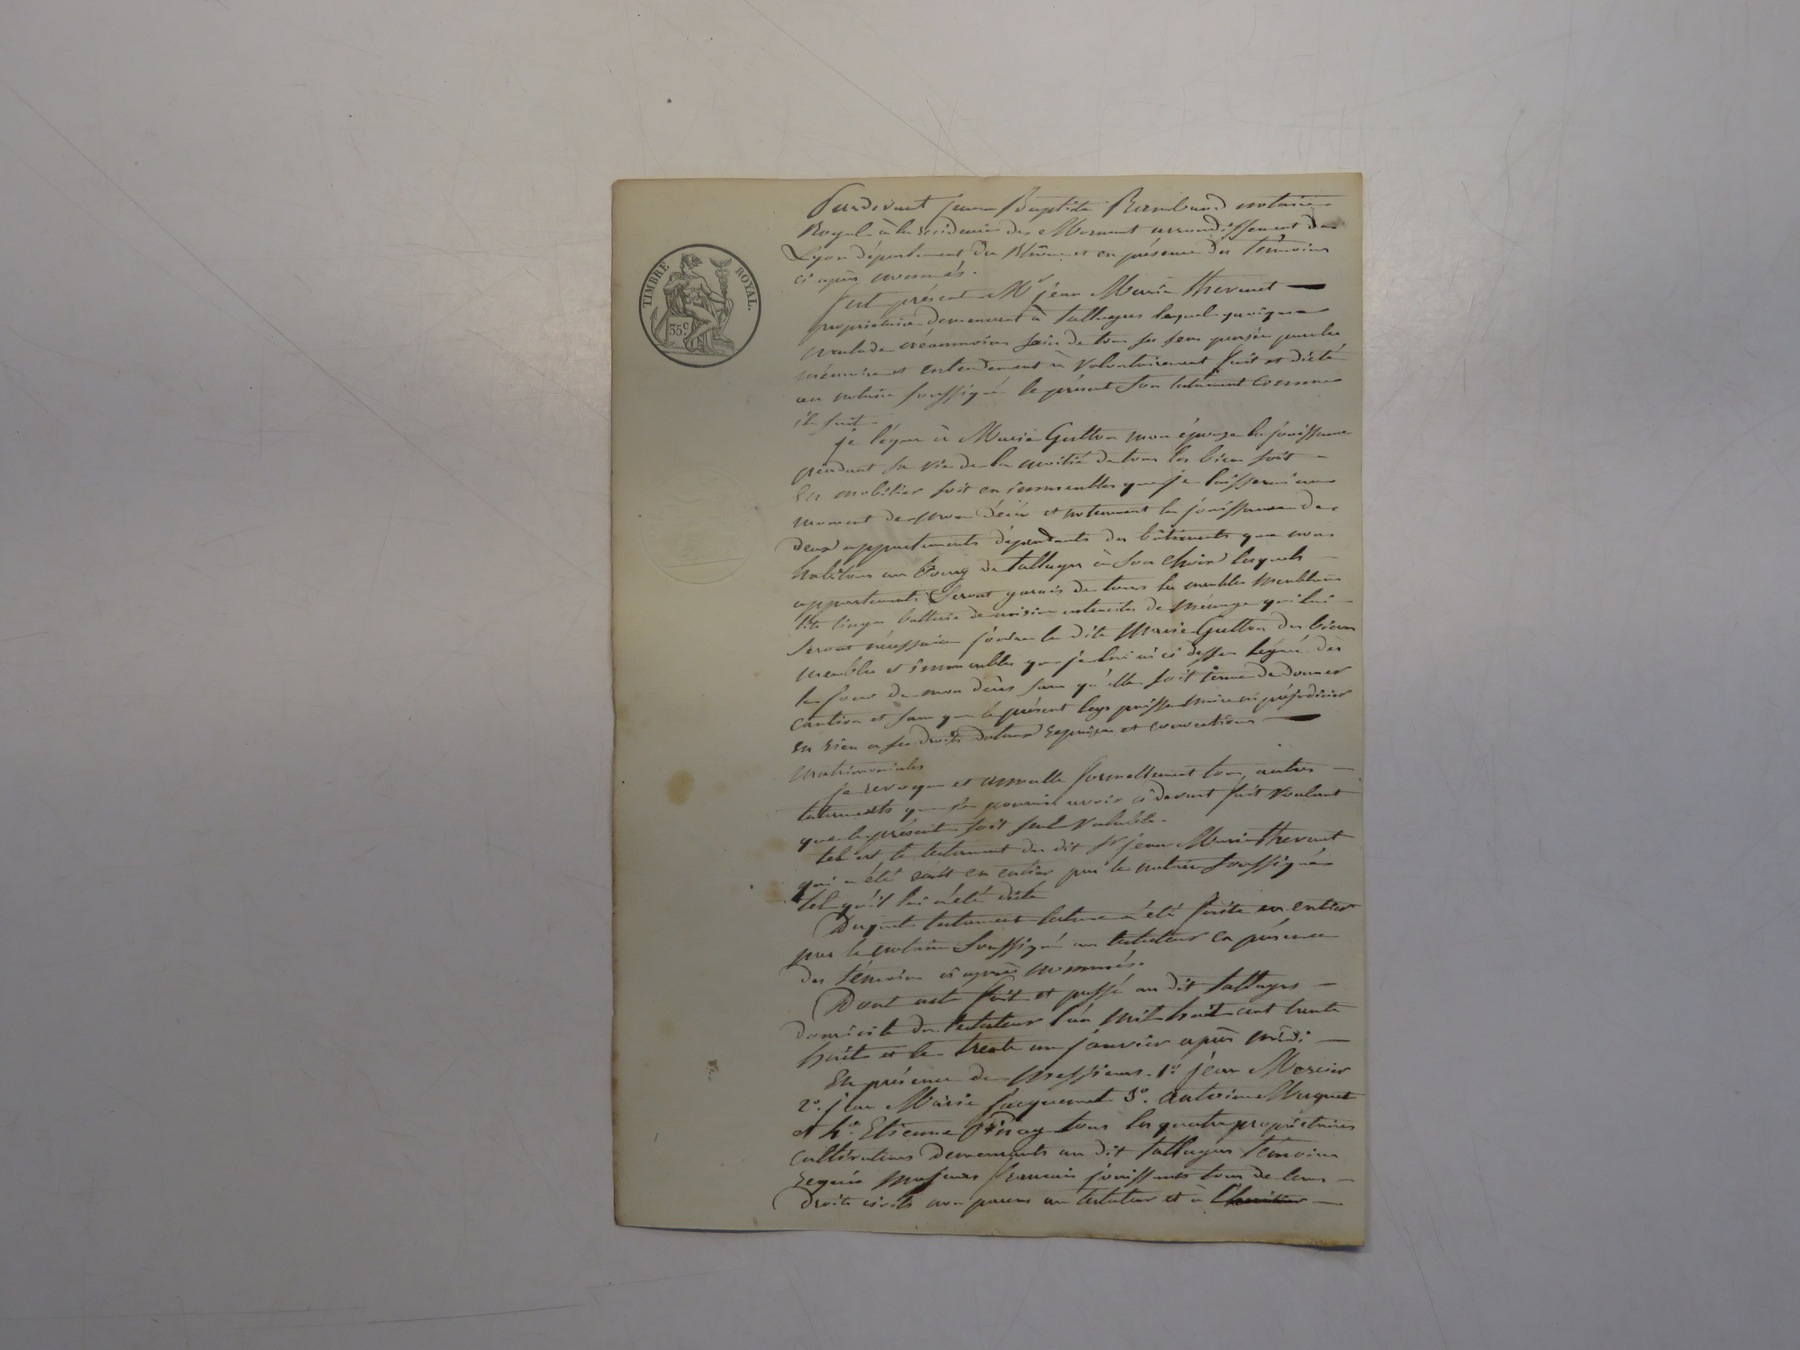 TIMBRE ROYAL.
35 c
Pardevant jean Baptiste Rambaud notaire
Royal à la résidence de Mornant arrondissement de
Lyon département du Rhône et en présence des témoins
ci après nommés.
fut présent Mr jean Marie thevenet
propriétaire demeurant à taluyers lequel quoique
malade néanmoins sain de tous ses sens parole
mémoire et entendement à volontairement fait et dicté
au notaire soussigné le présent son testament comme
il suit
je lègue à Marie Gutton mon épouse la jouissance
pendant sa vie de la moitié de tous les biens soit
en mobilier soit en immeubles que je laisserai au
moment de mon décès et notamment la jouissance de
deux appartements dépendants des bâtiments que nous
habitons au Bourg de talluyers à son choix lesquels
appartements seront garnis de tous les meubles meublants
lits linges batterie de cuisine ustenciles de ménage qui lui
seront nécessaires jouira la dite Marie Gutton des biens
meubles et immeubles que je lui ai ci dessus légué dès
le jour de mon décès sans qu'elle soit tenue de donner
caution et sans que le présent legs puisse nuire ni préjudicier
en rien a ses droits dotaux reprises et conventions
matrimoniales
je revoque et annulle formellement tous autres
testaments que je pourrais avoir ci devant fait voulant
que le présent soit seul valable.
tel est le testament du dit Sr jean Marie thevenet
qui a été écrit en entier par le notaire soussigné
tel qu'il lui a été dicté
Duquel testament lecture a été faite en entier
par le notaire soussigné au testateur en présence
des témoins ci après nommés.
Dont acte fait et passé au dit talluyers
domicile du testateur l'an mil huit cent trente
huit et le trente un janvier après midi
En présence de Messieurs 1º. jean Mercier
2º. jean Marie jacquemet 3º. antoine Maguet
et 4º. Etienne Pinay tous les quatre propriétaires
cultivateurs demeurants au dit talluyers témoins
requis majeurs français jouissants tous de leurs
droits civils non parens au testateur et à l'héritier